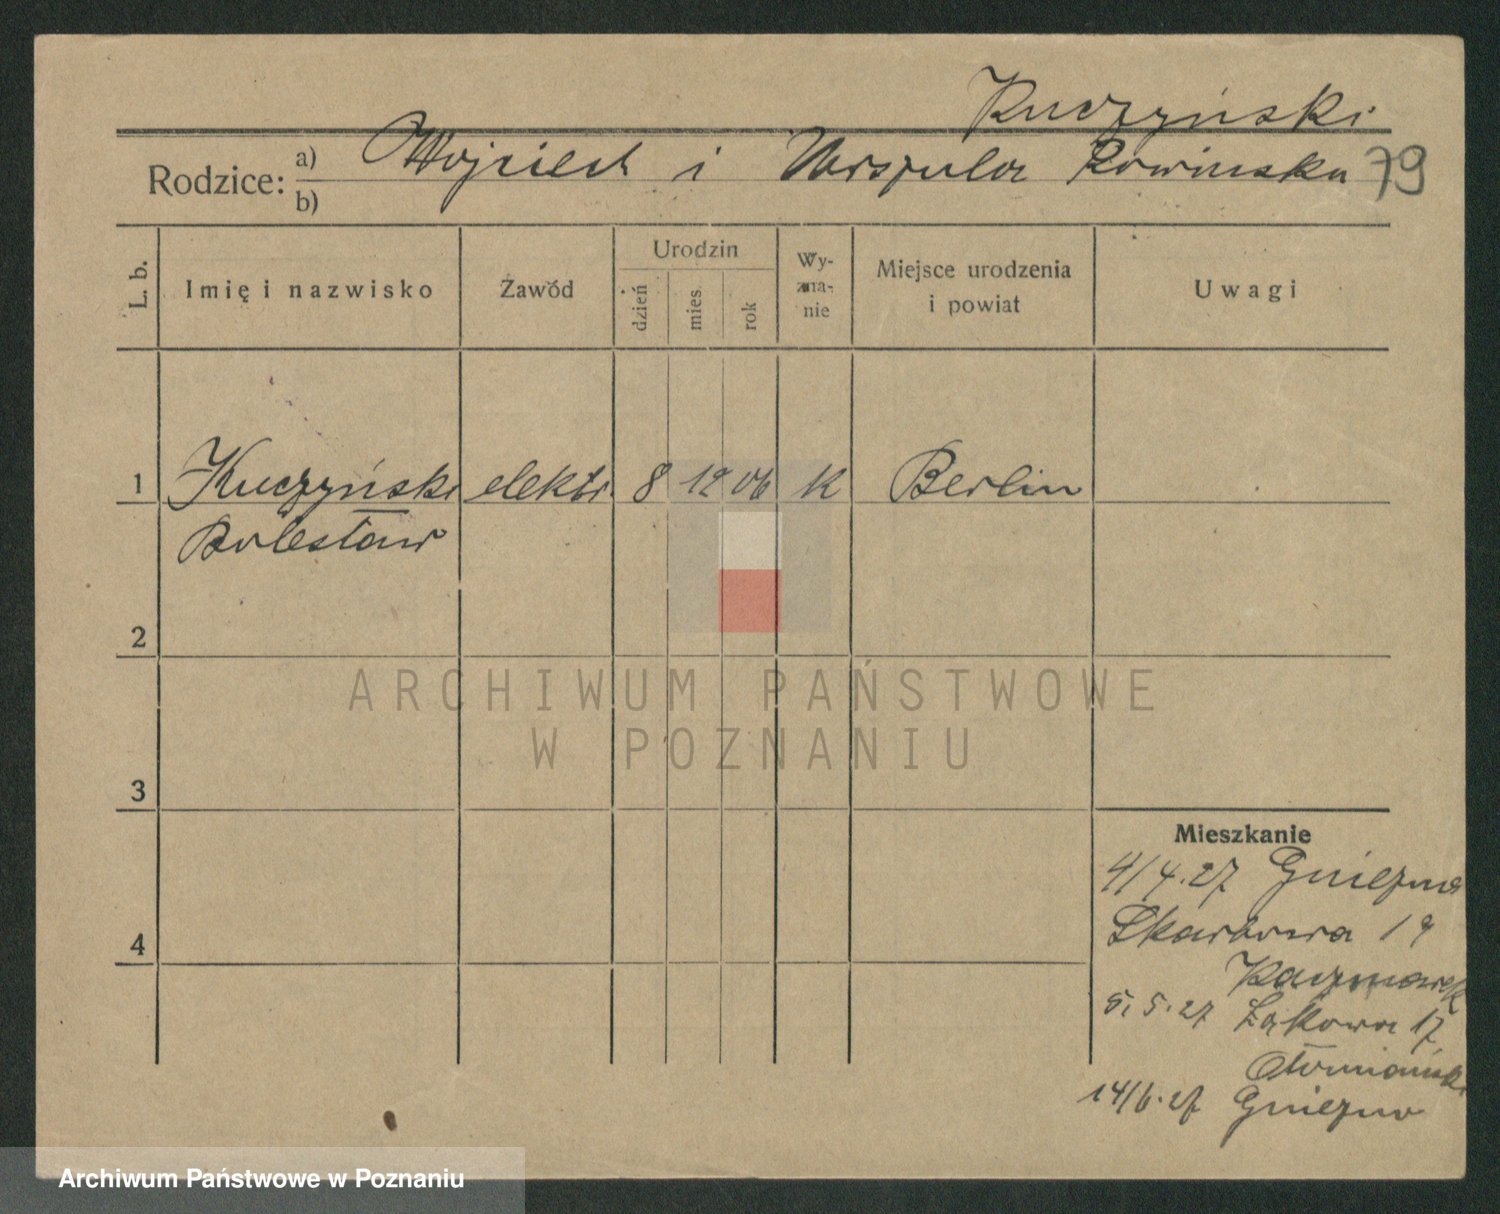 Kuczyński
Rodzice: a) Wojciech i Urszula Rowińska 79
b)
L. b. Imię i nazwisko Zawód Urodzin dzień mies. rok Wyznanie Miejsce urodzenia i powiat Uwagi
1 Kuczyński elektr. 8 12 06 K Berlin
Bolesław
2
ARCHIWUM PAŃSTWOWE
W POZNANIU
3
Mieszkanie
4/4.27 Gniezno
4 Skarbowa 19
Kaczmarek
5.5.27 Łąkowa 17
14/6.27 Gniezno
Archiwum Państwowe w Poznaniu